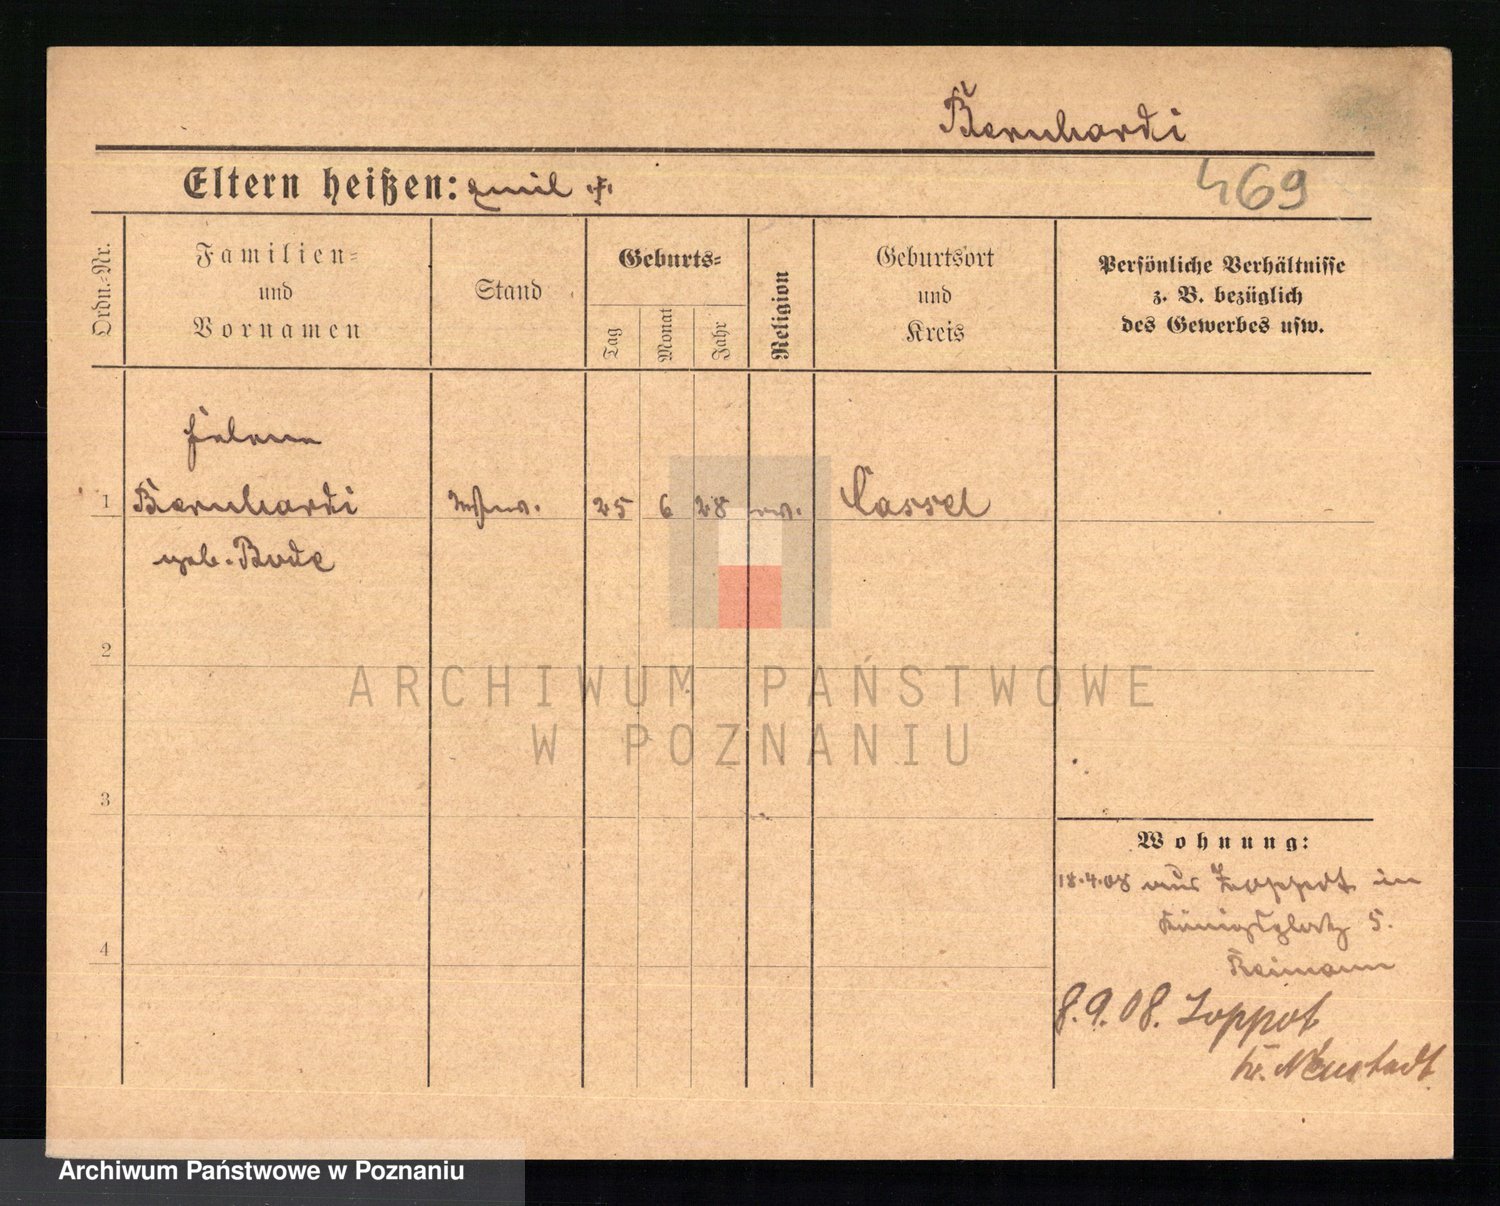 Bernhardi
Eltern heißen: Emil †.
469
Ordn.-Nr.
Familien-
und
Vornamen
Stand
Geburts-
Tag
Monat
Jahr
Religion
Geburtsort
und
Kreis
Persönliche Verhältnisse
z. B. bezüglich
des Gewerbes usw.
Helene
1 Bernhardi 25 6 28 ev. Cassel
geb. Bode
2
3
4
ARCHIWUM PAŃSTWOWE
W POZNANIU
Wohnung:
18.4.08 aus Zoppot in
Königsplatz 5.
Reimann
8.9.08. Zoppot
Kr. Neustadt
Archiwum Państwowe w Poznaniu